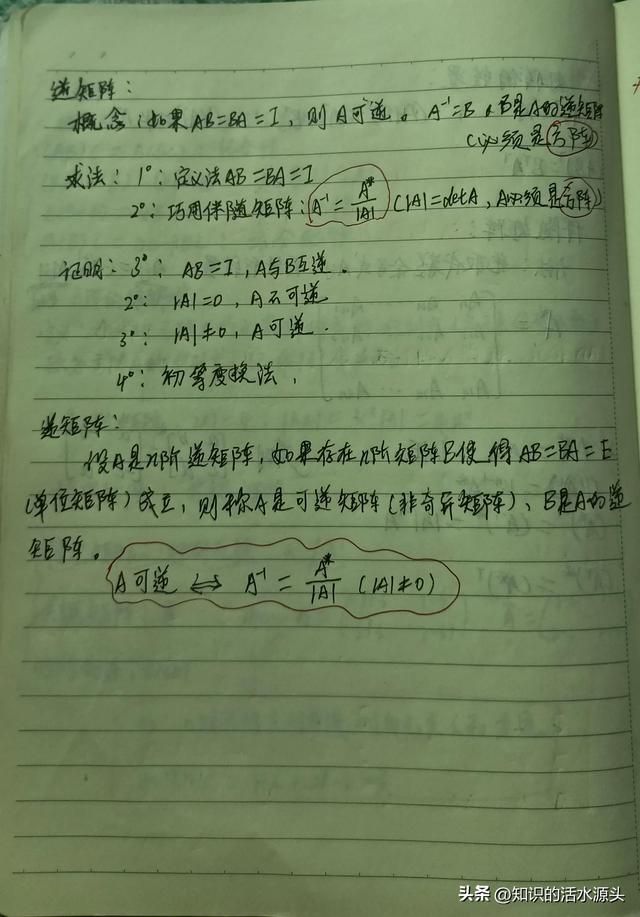 逆矩阵:
概念:如果AB=BA=I,则A可逆。A⁻¹=B,B是A的逆矩阵
(必须是方阵)
求法:1°:定义法AB=BA=I
2°:巧用伴随矩阵:A⁻¹=A*/|A|(|A|=detA,A必须是方阵)
证明:3°:AB=I,A与B互逆.
2°:|A|=0,A不可逆
3°:|A|≠0,A可逆.
4°:初等变换法,
逆矩阵:
设A是n阶逆矩阵,如果存在n阶矩阵B使得AB=BA=E
(单位矩阵)成立,则称A是可逆矩阵(非奇异矩阵)、B是A的逆
矩阵。
A可逆⇔A⁻¹=A*/|A|(|A|≠0)
头条@知识的活水源头